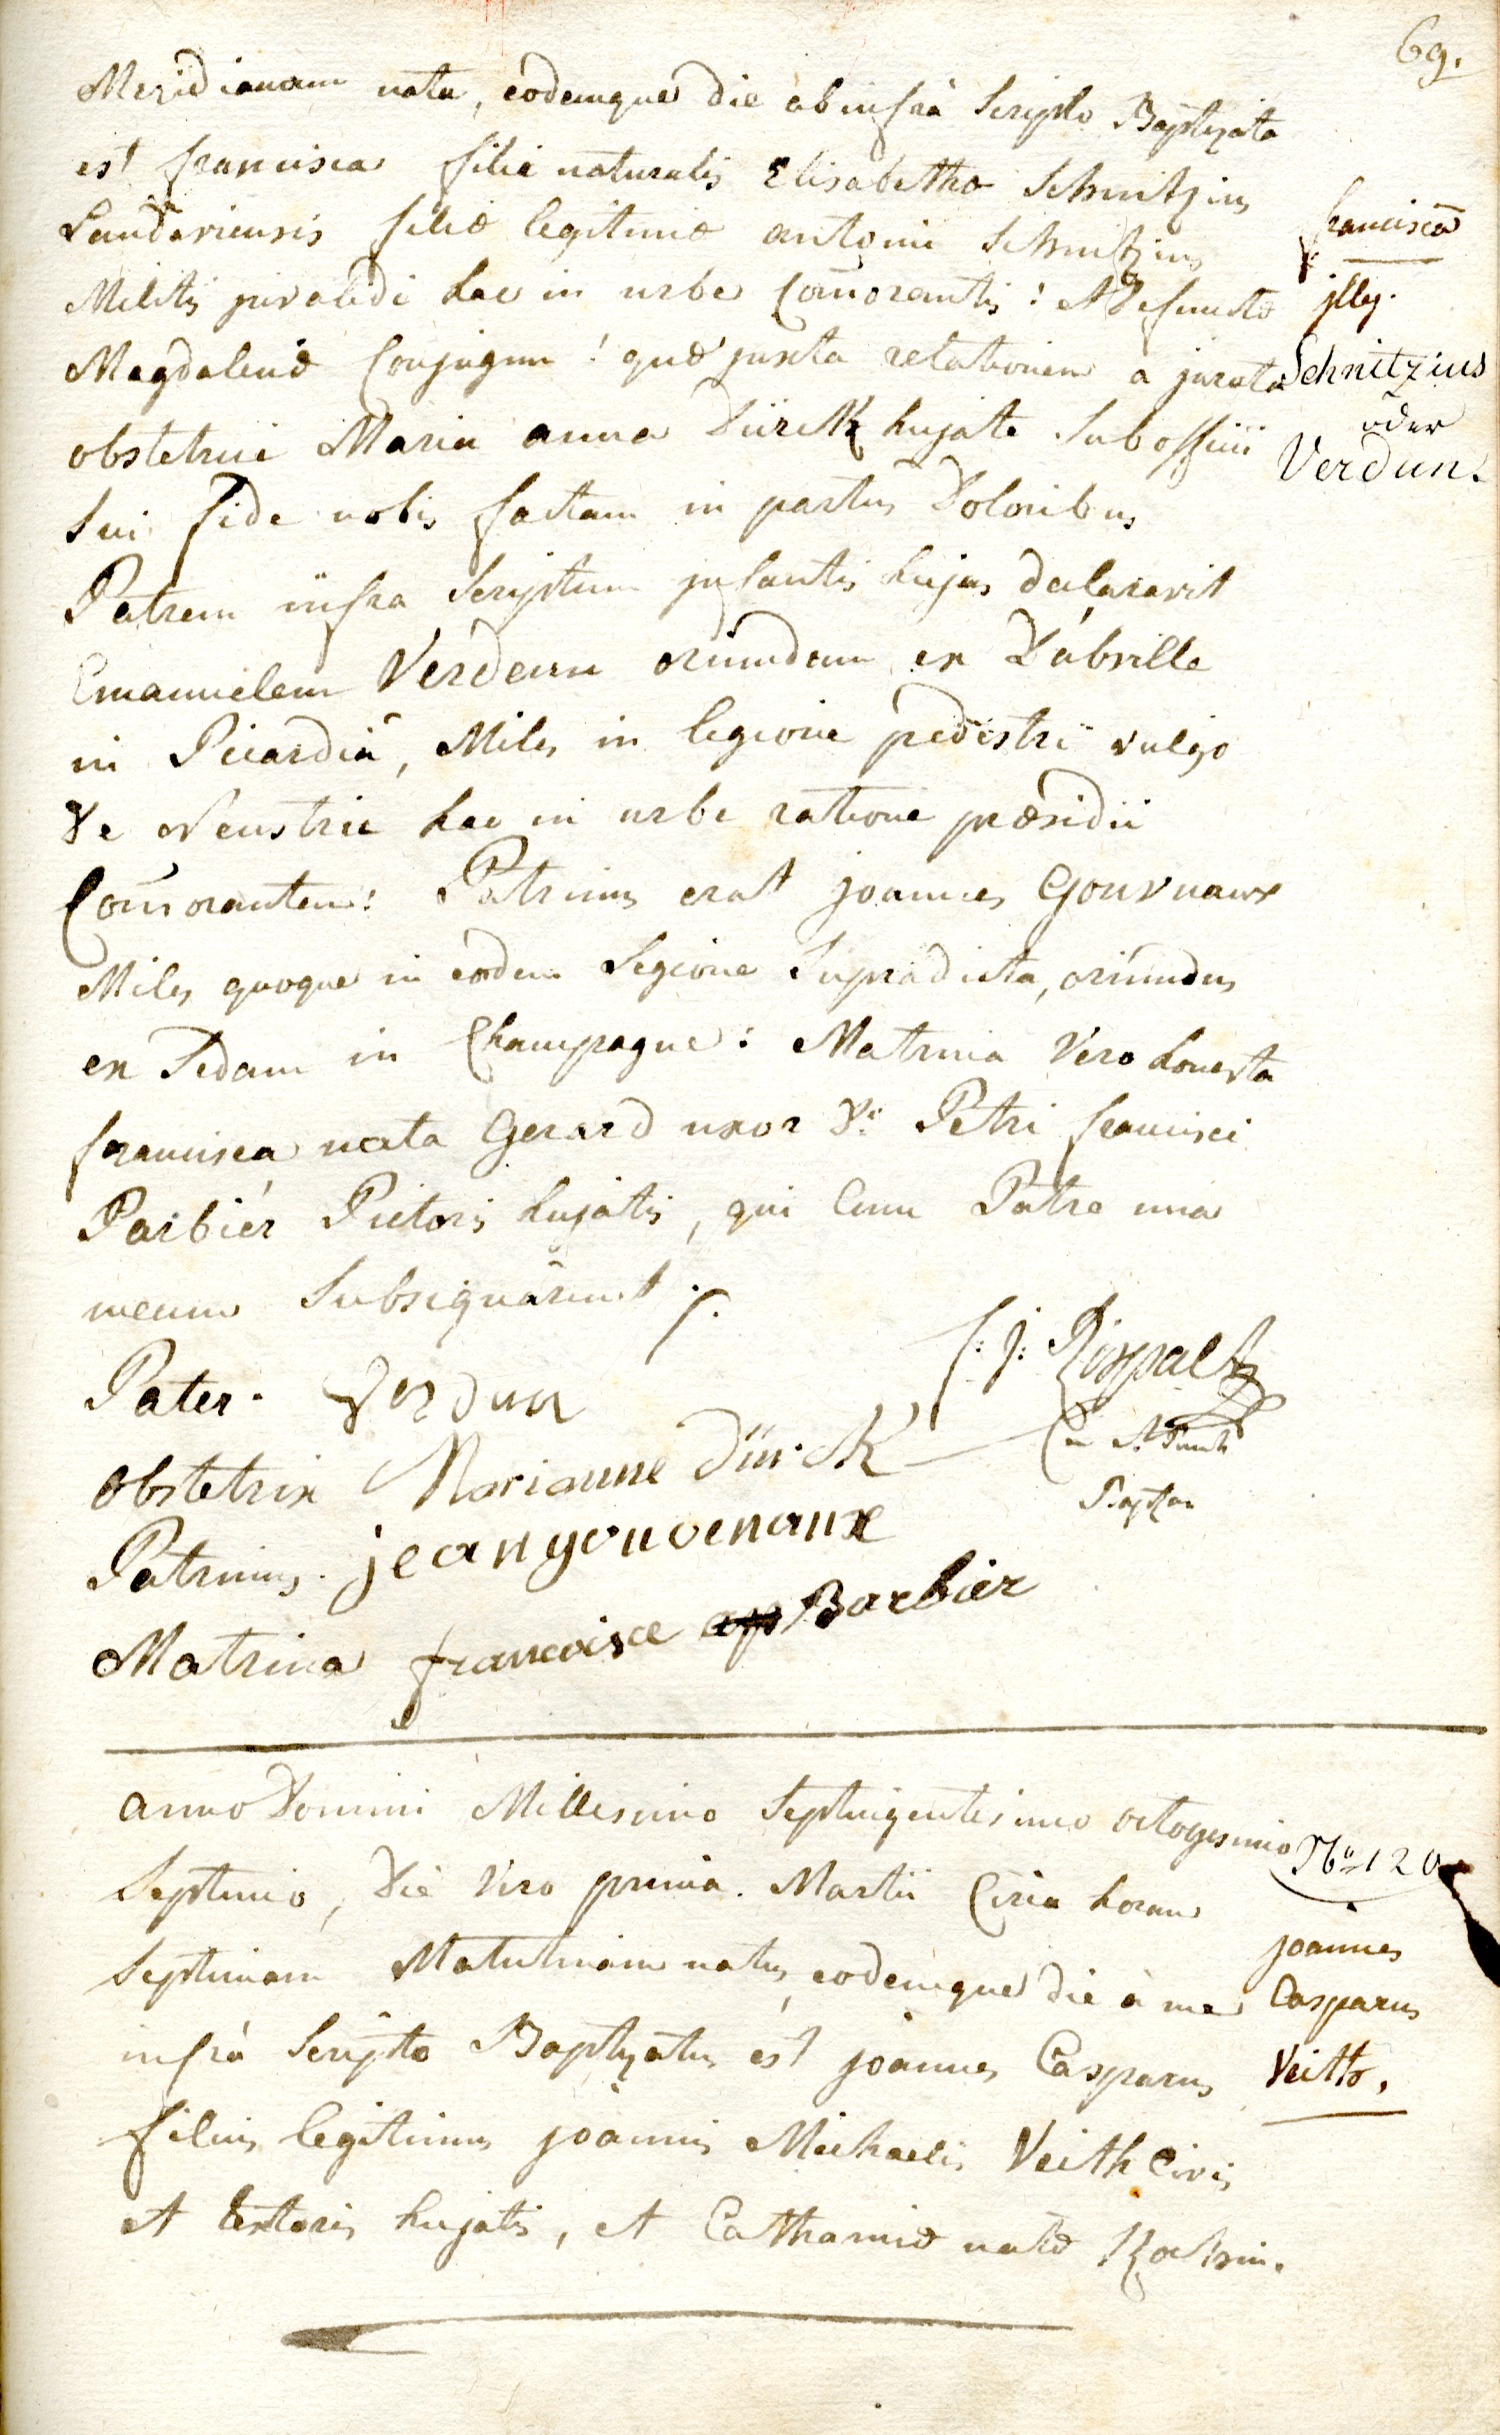 69.
Meridianam nata, eodemque die ab infrà Scripto Baptizata
est francisca filia naturalis Elisabetha Schnitzius
Landaviensis filiæ legitimæ antonii Schnitzius
Militis jnvalidi hac in urbe Com̄orantis: et defunctæ
Magdalenæ Conjugum! quæ juxta relationem a jurata
obstetrice Maria anna Dürck hujate Sub officii
Sui fide nobis factam in partus Doloribus
Patrem infra Scriptum jnfantis hujus declaravit
Emanuelem Verdun oriundum ex
in Picardiâ, Miles in legione pedestri vulgo
De Neustrie hac in urbe ratione præsidii
Com̄orantem: Patrinus erat joannes Gouvnaux
Miles quoque in eodem Legione Supradicta, oriundus
ex Sedam in Champagne: Matrina Vero honesta
francisca nata Gerard uxor D: Petri francisci
Barbiér Pictoris hujatis, qui Cum Patre una
mecum Subsignârunt ·/.
francisca
jlleg.
Schnitzius
oder
Verdun.
f: j: Rispalt
Pater. Verdun
obstetrix Marianne dürck
Patrinus. jean gouvenaux
Matrina francoise Barbier
anno Domini Millesimo Septuigentesimo octogesimo
Septimo, Die Vero prima. Martii Circa horam
Septimam Matutinam natus, eodemque die à me
infrà Scripto Baptizatus est joannes Casparus
filius legitimus joannis Michaelis Veith Civis
et textoris hujatis, et Catharinæ natæ
No 120
joannes
Casparus
Veith.